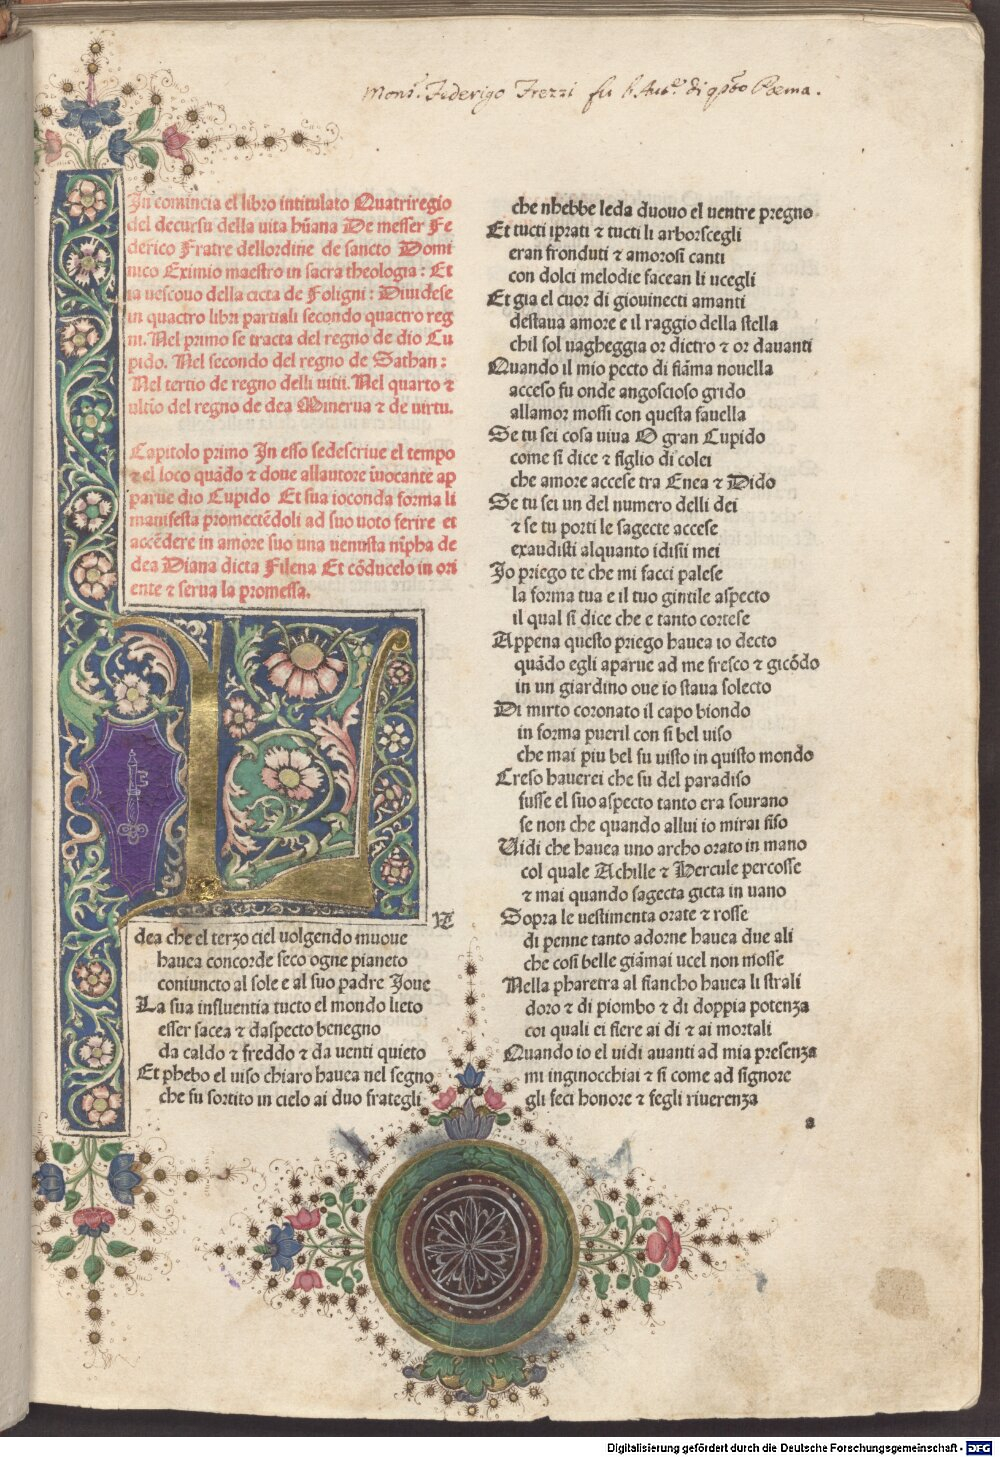 Mons.r Federigo Frezzi fu l'Aut.e di q.sto Poema.
In comincia el libro intitulato Quatriregio
del decursu della uita hūana De messer Fe
derico Fratre dellordine de sancto Domi
nico Eximio maestro in sacra theologia: Et
ia uescouo della cicta de Foligni: Diuidese
in quactro libri partiali secondo quactro reg
ni. Nel primo se tracta del regno de dio Cu
pido. Nel secondo del regno de Sathan:
Nel tertio de regno delli uitii. Nel quarto ⁊
ultīo del regno de dea Minerua ⁊ de uirtu.
Capitolo primo In esso sedescriue el tempo
⁊ el loco quādo ⁊ doue allautore īuocante ap
parue dio Cupido Et sua ioconda forma li
manifesta promectēdoli ad suo uoto ferire et
accēdere in amore suo una uenusta nīpha de
dea Diana dicta Filena Et cōducelo in ori
ente ⁊ serua la promessa.
LA
dea che el terzo ciel uolgendo muoue
hauea concorde seco ogne pianeto
coniuncto al sole e al suo padre Ioue
La sua influentia tucto el mondo lieto
esser facea ⁊ daspecto benegno
da caldo ⁊ freddo ⁊ da uenti quieto
Et phebo el uiso chiaro hauea nel segno
che fu sortito in cielo ai duo frategli
che nhebbe leda duouo el uentre pregno
Et tucti iprati ⁊ tucti li arborscegli
eran fronduti ⁊ amorosi canti
con dolci melodie facean li ucegli
Et gia el cuor di giouinecti amanti
destaua amore e il raggio della stella
chil sol uagheggia or dietro ⁊ or dauanti
Quando il mio pecto di fiāma nouella
acceso fu onde angoscioso grido
allamor mossi con questa fauella
Se tu sei cosa uiua O gran Cupido
come si dice ⁊ figlio di colei
che amore accese tra Enea ⁊ Dido
Se tu sei un del numero delli dei
⁊ se tu porti le sagecte accese
exaudisti alquanto idisii mei
Io priego te che mi facci palese
la forma tua e il tuo gintile aspecto
il qual si dice che e tanto cortese
Appena questo priego hauea io decto
quādo egli aparue ad me fresco ⁊ gicōdo
in un giardino oue io staua solecto
Di mirto coronato il capo biondo
in forma pueril con si bel uiso
che mai piu bel fu uisto in quisto mondo
Creso hauerei che fu del paradiso
fusse el suo aspecto tanto era sourano
se non che quando allui io mirai fiso
Uidi che hauea uno archo orato in mano
col quale Achille ⁊ Hercule percosse
⁊ mai quando sagecta gicta in uano
Sopra le uestimenta orate ⁊ rosse
di penne tanto adorne hauea due ali
che cosi belle giāmai ucel non mosse
Nella pharetra al fiancho hauea li strali
doro ⁊ di piombo ⁊ di doppia potenza
coi quali ei fiere ai di ⁊ ai mortali
Quando io el uidi auanti ad mia presenza
mi inginocchiai ⁊ si come ad signore
gli feci honore ⁊ fegli riuerenza
a
Digitalisierung gefördert durch die Deutsche Forschungsgemeinschaft - DFG